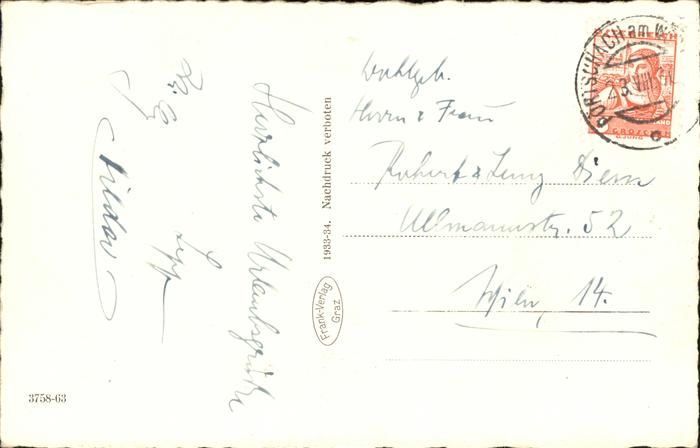 Herzlichste Urlaubsgrüße
Sepp
1933-34. Nachdruck verboten
Frank-Verlag
Graz
3758-63
PÖRTSCHACH am W.
GROSCHEN
Wohlgeb.
Herrn & Frau
Robert & Diem
Ullmannstr. 52
Wien, 14.